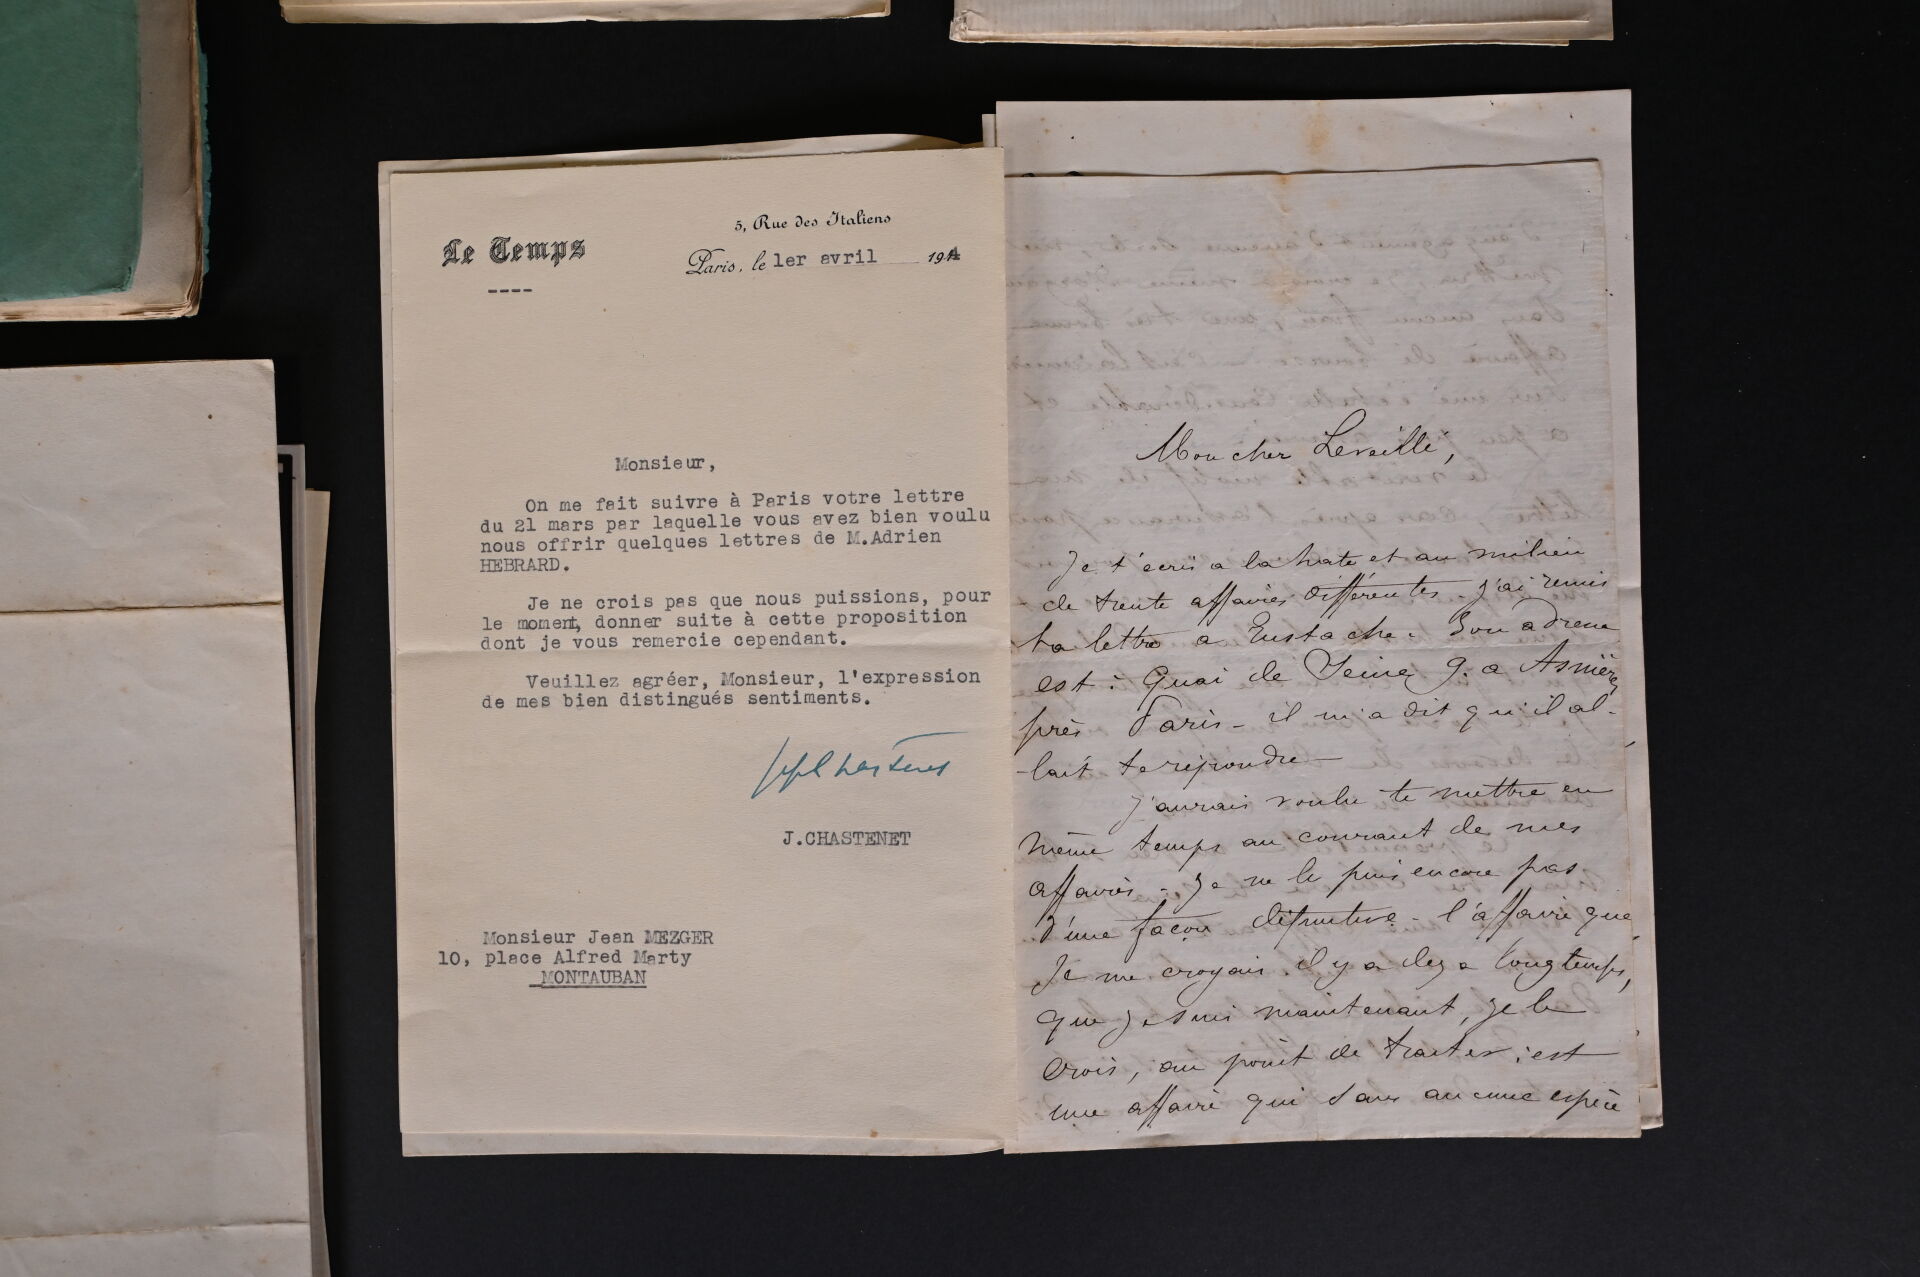 Le Temps
5, Rue des Italiens
Paris, le 1er avril 194
Monsieur,
On me fait suivre à Paris votre lettre
du 21 mars par laquelle vous avez bien voulu
nous offrir quelques lettres de M.Adrien
HEBRARD.
Je ne crois pas que nous puissions, pour
le moment, donner suite à cette proposition
dont je vous remercie cependant.
Veuillez agréer, Monsieur, l'expression
de mes bien distingués sentiments.
J.CHASTENET
Monsieur Jean MEZGER
10, place Alfred Marty
MONTAUBAN
Mon cher Leveillé,
Je t'écris a la hate et au milieu
de trente affaires différentes - j'ai remis
ta lettre a Eustache. Son adresse
est : Quai de Seine 9. a Asnières
près Paris - il m'a dit qu'il al-
-lait te répondre -
J'aurais voulu te mettre en
même temps au courant de mes
affaires - Je ne le puis encore pas
d'une façon définitive - l'affaire que
Je me croyais il y a deja longtemps,
que je suis maintenant, je le
crois, au point de traiter, est
une affaire qui sans aucune espèce